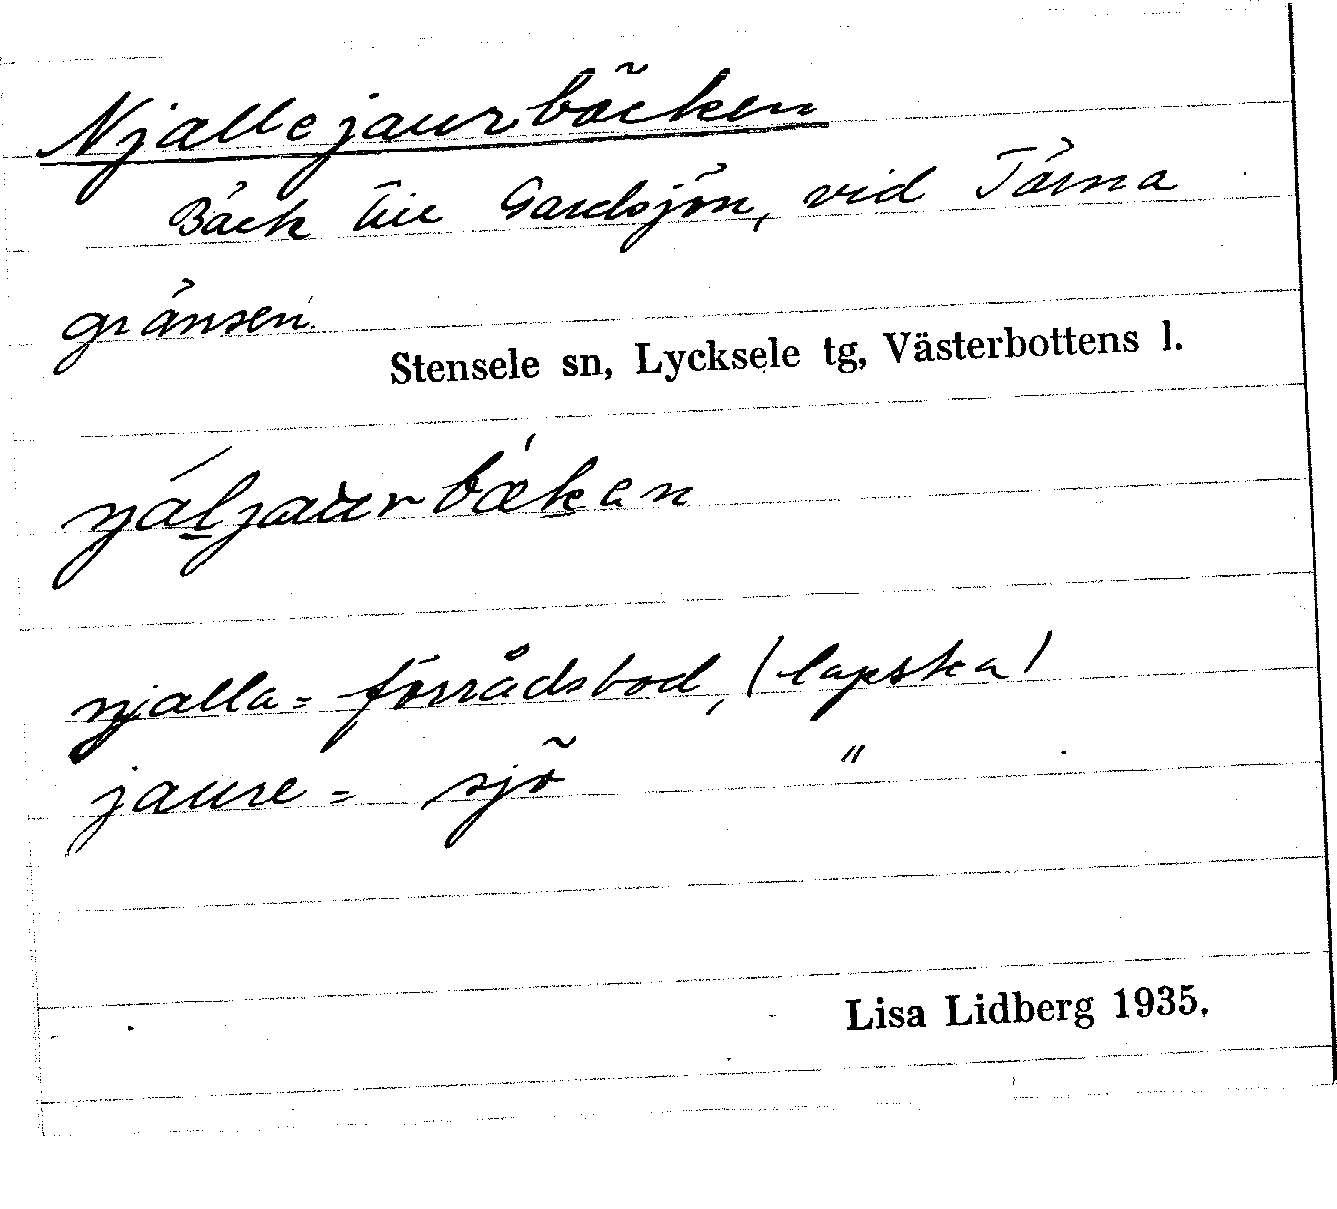 Njallejaurbäcken
Bäck till Gardsjön, vid Tärna
gränsen.
Stensele sn, Lycksele tg, Västerbottens l.
njáljaurbǽkan
njalla = förrådsbod, (lapska)
jaure = sjö "
Lisa Lidberg 1935.